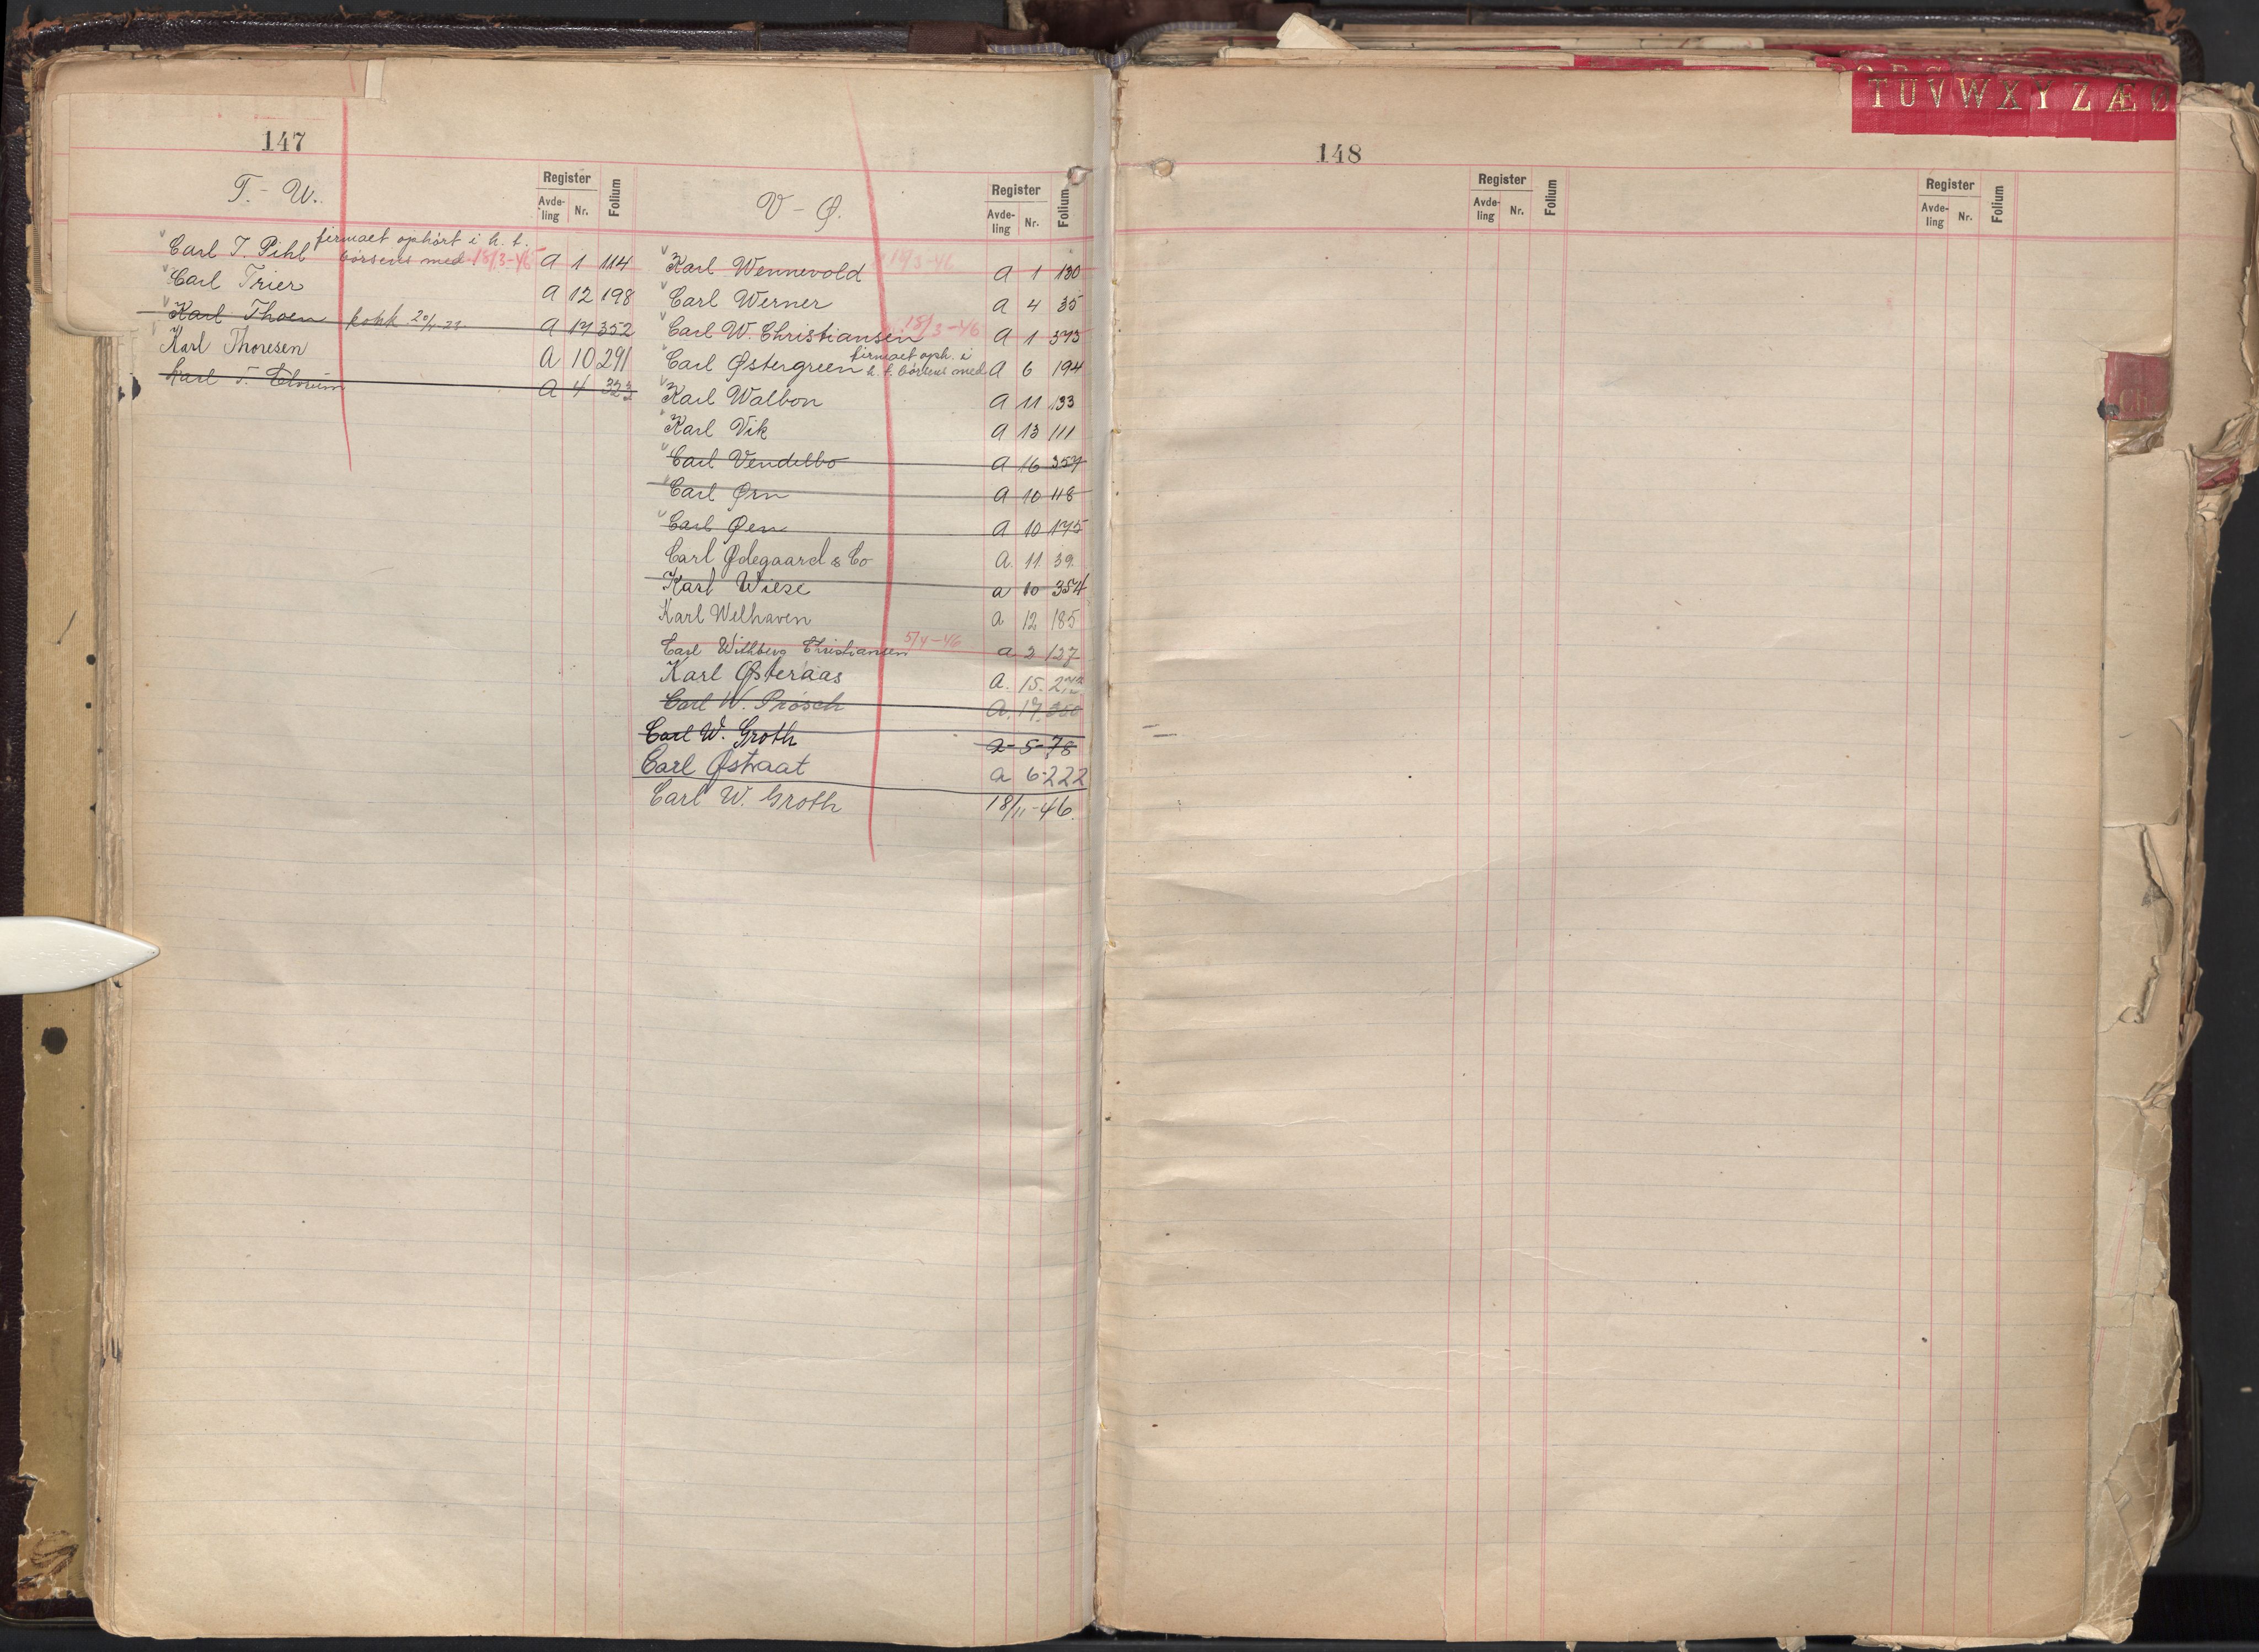 147
T. - W.
Register
Avde-
ling
Nr.
Folium
Carl T. Pihl firmaet ophørt i h. t.
børsens med. 18/3-46 A 1 114
Carl Trier A 12 198
Karl Thoen kokk. A 17 352
Karl Thoresen A 10 291
Karl T. A 4 323
V - Ø.
Register
Avde-
ling
Nr.
Folium
Karl Wennevold 18/3-46 A 1 130
Carl Werner A 4 35
Carl W. Christiansen 18/3-46 A 1 373
Carl Østergreen firmaet oph. i
h. t. børsens med A 6 194
Karl Walbon A 11 133
Karl Vik A 13 111
Carl Vendelbo A 16 357
Carl Ørn A 10 118
Carl Øen A 10 175
Carl Ødegaard & Co A. 11 39.
Karl Wiese a 10 354
Karl Welhaven a 12 185
Carl Withberg Christiansen 5/4-46 a 2 127
Karl Østeraas A. 15.
Carl W. Prøsch A. 17. 350
Carl W. Groth a- 5-78
Carl Østraat a 6-222
Carl W. Groth 18/11-46.
TUVWXYZÆØ
148
Register
Avde-
ling
Nr.
Folium
Register
Avde-
ling
Nr.
Folium